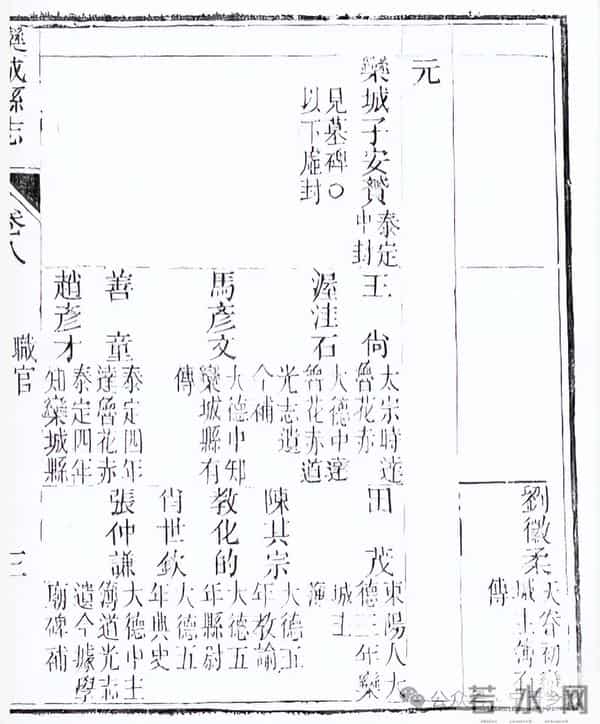 劉徽柔
城主簿有
傳
元
欒城子安贇
泰定
中封
見墓碑○
以下虛封
王尚
太宗時達
魯花赤
渥洼石
大德中達
魯花赤道
光志遺
今補
馬彥文
大德中知
欒城縣有
傳
善童
泰定四年
達魯花赤
趙彥才
泰定四年
知欒城縣
田茂
東陽人大
德三年欒
城主
簿
陳其宗
大德五
年教諭
教化的
大德五
年縣尉
肖世欽
大德五
年典史
張仲謙
大德中主
簿道光志
遺今據學
廟碑補
欒城縣志
卷八
職官
公众号
若水网